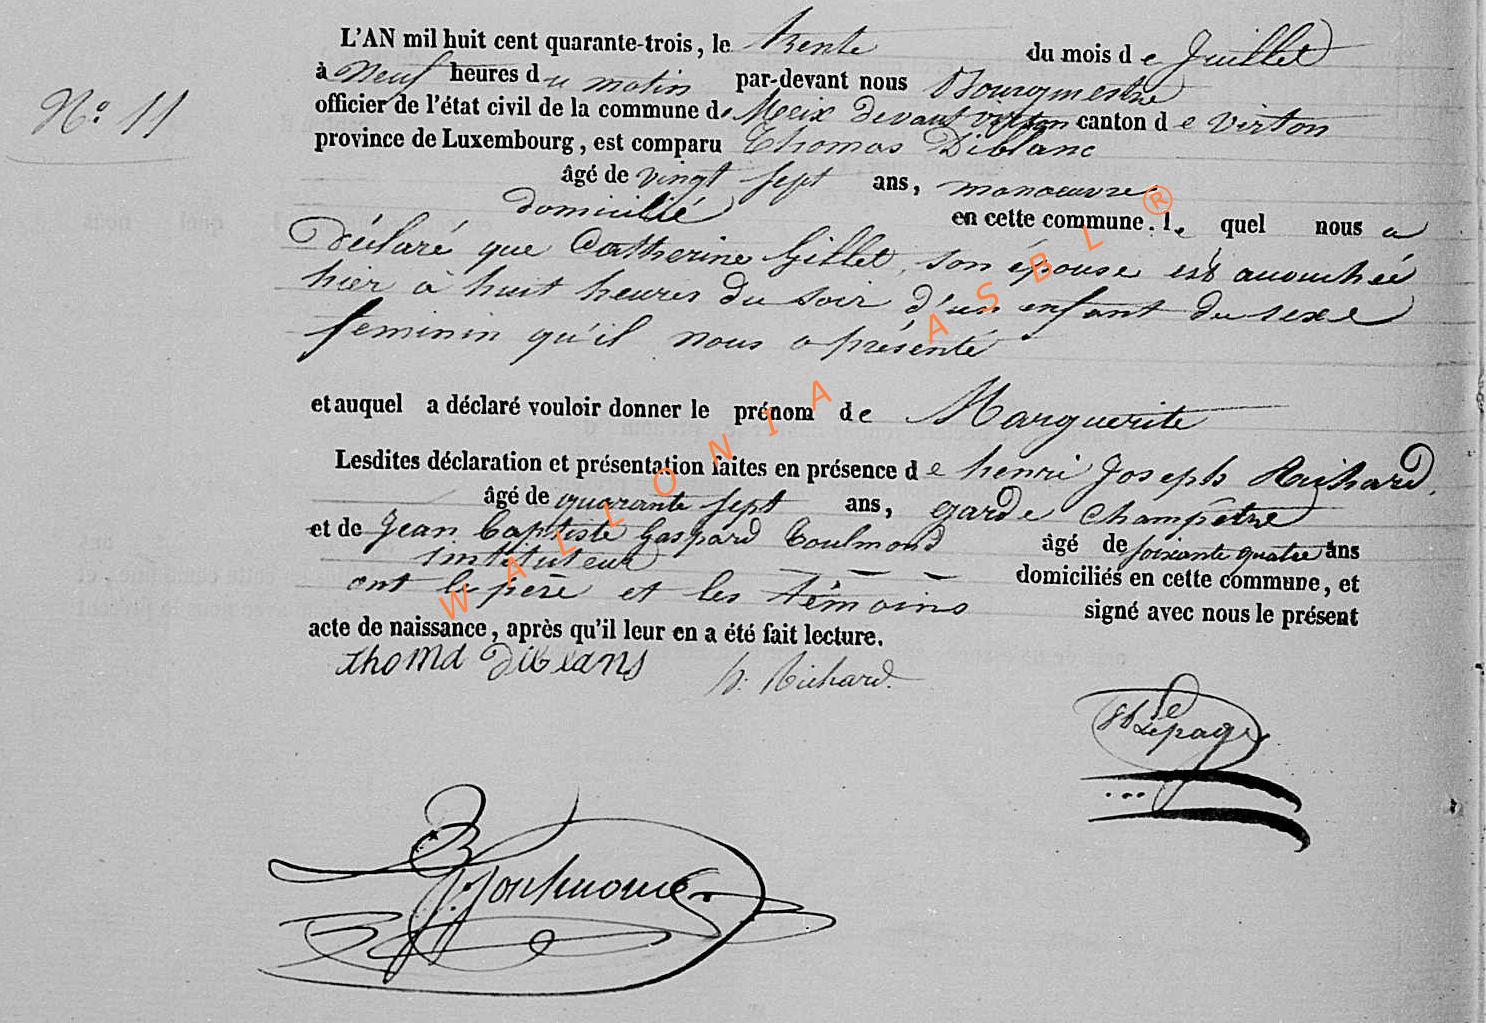 L'AN mil huit cent quarante-trois, le trente du mois de Juillet
à Neuf heures du matin par-devant nous Bourgmestre
N° 11
officier de l'état civil de la commune de Meix devant virton canton de virton
province de Luxembourg, est comparu Thomas Diblanc
âgé de vingt sept ans, manoeuvre
domicilié en cette commune. le quel nous a
Déclaré que Catherine Gillet, son épouse est accouchée
hier à huit heures du soir d'un enfant du sexe
feminin qu'il nous a présenté
et auquel a déclaré vouloir donner le prénom de Marguerite
Lesdites déclaration et présentation faites en présence de henri Joseph Richard.
âgé de quarante sept ans, garde Champêtre
et de Jean Baptiste Gaspard Toulmond âgé de soixante quatre ans
instituteur domiciliés en cette commune, et
ont le père et les témoins signé avec nous le présent
acte de naissance, après qu'il leur en a été fait lecture.
thomd Diblans h. Richard.
Lepage
Toulmond
WALLONIA ASBL ®